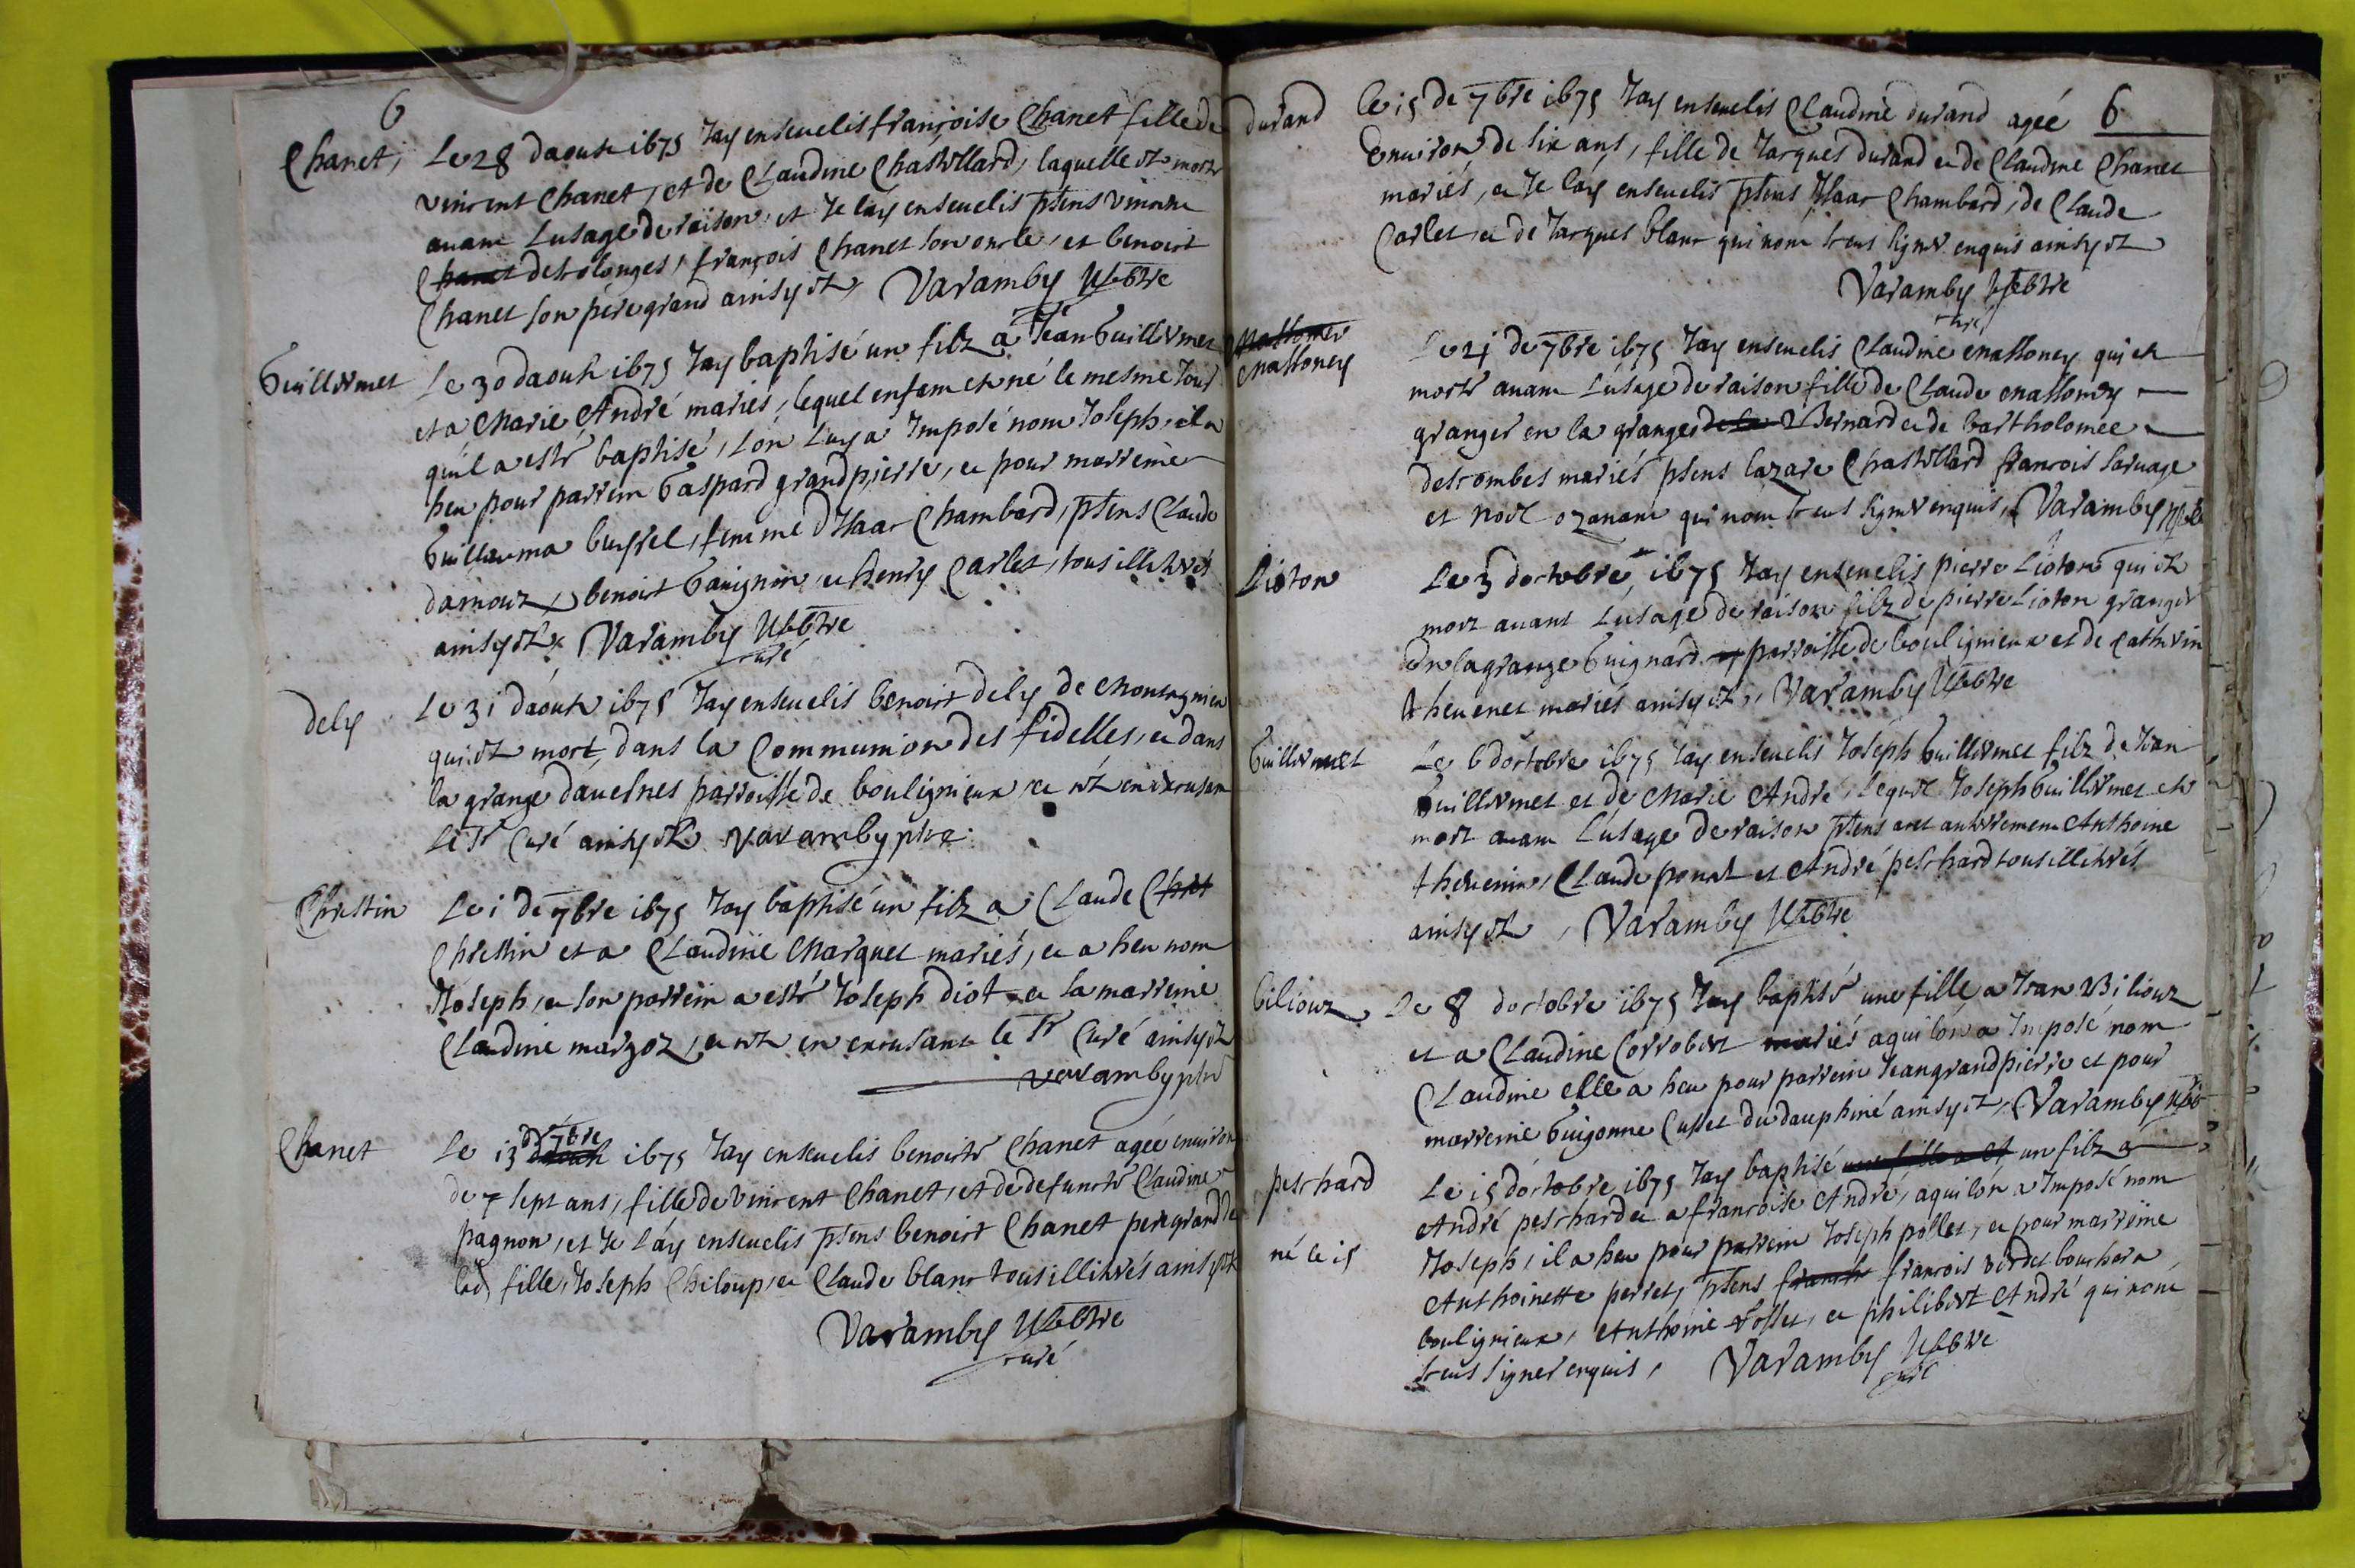 6
Chanet, Le 28 daoust 1675 Jay enseuelis françoise Chanet fille de
vincent Chanet, et de Claudine Chastellard, laquelle est morte
auant Lusage de raison, et Je lay enseuelis pñts vincent
Chanet descolonges, françois Chanet son oncle, et benoist
Chanet son père grand ainsy est, Varamby
Guillermet Le 30 daoust 1675 Jay baptisé un filz a Jean Guillermet
et a Marie André mariés, lequel enfant est né le mesme Jour
quil a esté baptisé, lón luy a Imposé nom Joseph, il a
heu pour parrein Gaspard grandpierre, et pour marreine
Guillauma buyssel, femme d'Isaac Chambard, pñts Claude
damour, benoist Gauignon, et henry Carlet, tous illiterés
ainsy est, Varamby
curé
dely Le 31 daoust 1675 Jay enseuelis benoist dely de Montagnieu
qui est mort dans la Communion des fidelles, et dans
la grange dauesnes parroisse de bouligneux, ce nt en excusant
le Sr Curé ainsy est Varamby pbre
Chrestin Le 1 de 7bre 1675 Jay baptisé un filz a Claude Chret
Chrestin et a Claudine Marquet mariés, et a heu nom
Joseph, et son parrein a esté Joseph diot et sa marreine
Claudine margoz, et nt en excusant le Sr Curé ainsy est
Varamby pbre
de 7bre
Chanet Le 13 daoust 1675 Jay enseuelis benoiste Chanet agée enuiron
de 7 sept ans, fille de vincent Chanet, et de defuncte Claudine
pagnon, et Je láy enseuelis pñts benoist Chanet pere grand de
lad fille, Joseph Chiloup, et Claude blanc tous illiterés ainsy est
Varamby
curé
durand Le 15 de 7bre 1675 Jay enseuelis Claudine durand agée 6
Enuiron de six ans, fille de Jacques durand et de Claudine Chanet
mariés, et Je láy enseuelis pñts Isaac Chambard, de Claude
Carlet, et de Jacques blanc qui nont sceus signer enquis ainsy est
Varamby
curé
Mathoney Le 21 de 7bre 1675 Jay enseuelis Claudine Mathoney qui est
morte auant Lúsage de raison fille de Claude Mathoney
granger en la grange de la Bernard et de bartholomee
descombes mariés pñts lazare Chastellard francois sauuage
et noel ozanam qui nont sceus signer enquis, Varamby
Lioton Le 3 doctobre 1675 Jay enseuelis pierre Lioton qui est
mort auant Lúsage de raison filz de pierre Lioton granger
en la grange Guignard parroisse de bouligneux et de Catherine
theuenet mariés ainsy est, Varamby
Guillermet Le 6 doctobre 1675 Jay enseuelis Joseph Guillermet filz de Jean
Guillermet et de Marie André, lequel Joseph Guillermet est
mort auant Lúsage de raison pñts a cet anterrement Anthoine
theuenin, Claude ponat et André peschard tous illiterés
ainsy est, Varamby
biliouz Le 8 doctobre 1675 Jay baptisé une fille a Jean Biliouz
et a Claudine Corrobert mariés a qui lón a Imposé nom
Claudine elle a heu pour parrein Jean grandpierre et pour
marreine Guigonne Cusset du dauphiné ainsy est, Varamby
peschard Le 15 dóctobre 1675 Jay baptisé une fille a et un filz a
André peschard et a francoise André, a qui lon a Imposé nom
né le 15 Joseph, il a heu pour parrein Joseph pollet, et pour marreine
Anthoinette perret, pñts francois verdet boucher a
bouligneux, Anthoine rosset, et philibert André qui nont
sceus signer enquis, Varamby
curé